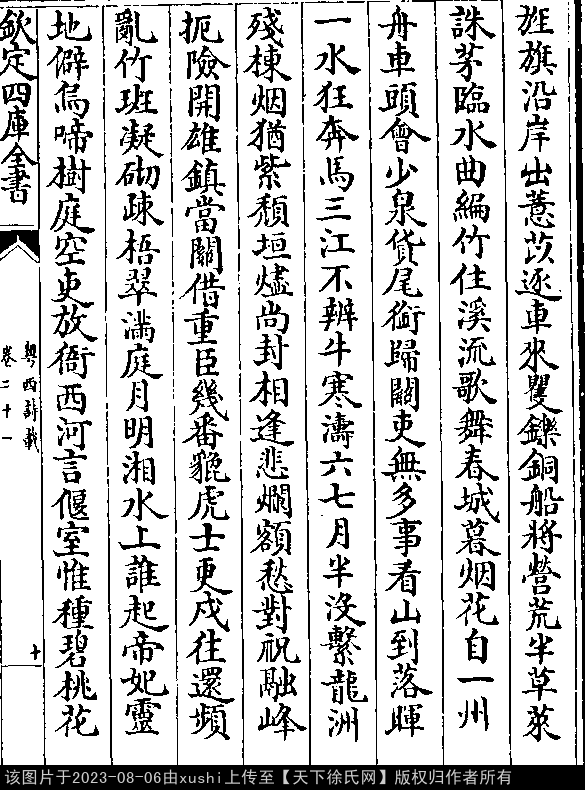 旌旗沿岸出薏苡逐車來矍鑠銅船將營荒半草萊
誅茅臨水曲編竹住溪流歌舞春城暮烟花自一州
舟車頭會少泉貨尾銜歸關吏無多事看山到落暉
一水狂奔馬三江不辨牛寒濤六七月半没繫龍洲
殘棟烟猶紫頽垣燼尚封相逢悲爛額愁對祝融峰
扼險開雄鎮當關借重臣幾番貔虎士更戍往還頻
亂竹班凝砌疎梧翠滿庭月明湘水上誰起帝妃靈
地僻烏啼樹庭空吏放衙西河言偃室惟種碧桃花
欽定四庫全書
粤西詩載
卷二十一
十
该图片于2023-08-06由xushi上传至【天下徐氏网】版权归作者所有